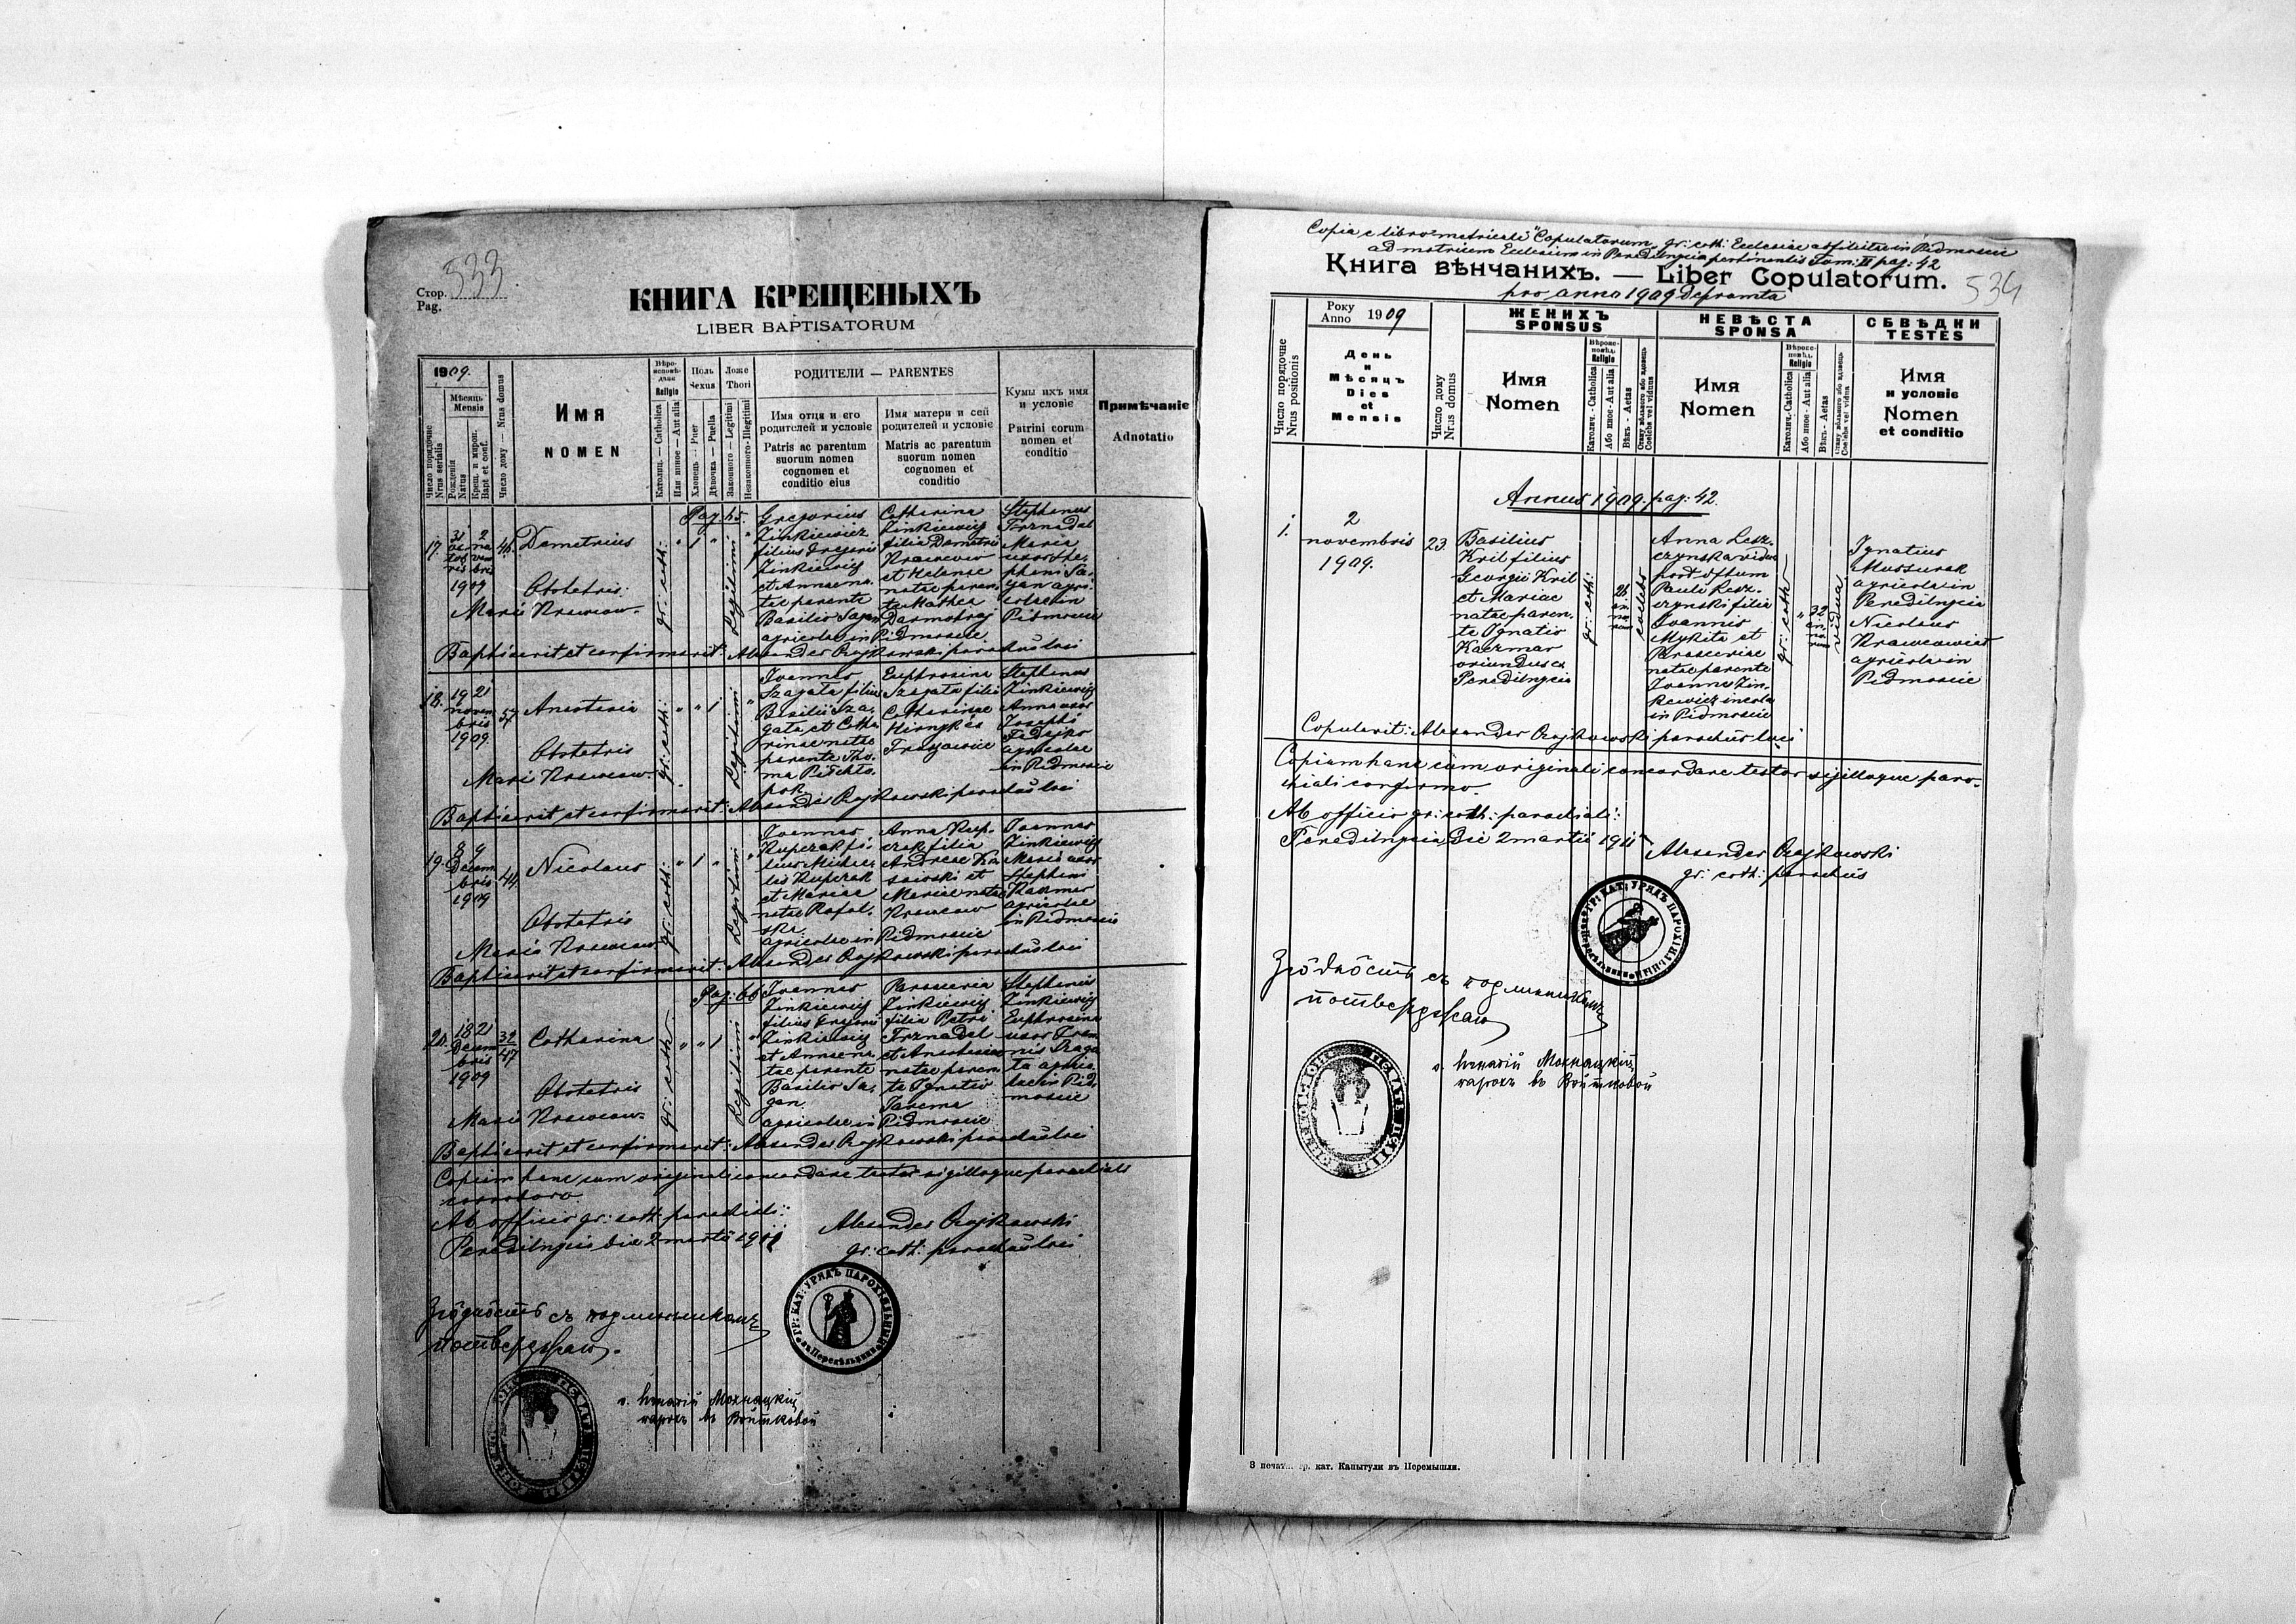 533
Стор.
Pag.
КНИГА КРЕЩЕНЫХЪ
LIBER BAPTISATORUM
1909.
Мѣсяць
Mensis
Число порядочне
Nrus serialis
Рожденія
Natus
Крещ. и миров.
Bapt et conf.
Число дому — Nrus domus
Имя
NOMEN
Вѣро-
исповѣ-
дане
Religio
Католиц. — Catholica
Или инное — Aut alia
Поль
Sexus
Хлопець — Puer
Дѣвочка — Puella
Ложе
Thori
Законного — Legitimi
Незаконного - Illegitimi
РОДИТЕЛИ — PARENTES
Имя отця и его
родителей и условіе
Patris ac parentum
suorum nomen
cognomen et
conditio eius
Имя матери и сей
родителей и условіе
Matris ac parentum
suorum nomen
cognomen et
conditio
Кумы ихъ имя
и условіе
Patrini eorum
nomen et
conditio
Примѣчаніе
Adnotatio
Pag. 65.
17. 31 2
octobris novembris
1909
46. Demetrius
Obstetrix
Maria Krawcow
gr: cath: " 1 " Legitimi "
Gregorius
Zinkiewicz
filius Gregorii
Zinkiewicz
et Annae na-
tae parente
Basilio Sagan
agricolae in Pidmosce
Catharina
Zinkiewicz
filia Demetrii
Krawcow
et Helenae
natae paren-
te Mathea
Darmohraj
Stephanus
Trznadel
Maria
uxor Ste-
phani Sa-
gan agri-
colae in
Pidmosce
Baptisavit et confirmavit: Alexander Czajkowski parochus loci
18. 19 21
novem
bris
1909
57 Anastasia
Obstetrix
Maria Krawcow
gr: cath: " " 1 Legitimi "
Joannes
Szagata filius
Basilii Sza-
gata et Catha
rinae natae
parente Tho-
ma
Euphrosina
Szagata filia
Catharinae
Stephanus
Zinkiewicz
Anna uxor
Josephi
Fedejko
agricolae
in Pidmosce
Baptisavit et confirmavit: Alexander Czajkowski parochus loci
19. 8 9
Decem
bris
1909
44 Nicolaus
Obstetrix
Maria Krawcow
gr: cath: " 1 " Legitimi "
Joannes
Kupczak fi-
lius Michae-
lis Kupczak
et Mariae
natae Rafal-
ska
agricolae in Pidmosce
Anna Kup-
czak filia
Andreae Ka
sowski et
Mariae natae
Krawcow
Joannes
Zinkiewicz
Maria uxor
Stephani
Kaczmar
agricolae
in Pidmosce
Baptisavit et confirmavit: Alexander Czajkowski parochus loci
Pag: 66
20. 18 21
Decem
bris
1909
32
47
Catharina
Obstetrix
Maria Krawcow
gr: cath: " " 1 Legitimi "
Joannes
Zinkiewicz
filius Gregorii
Zinkiewicz
et Annae na
tae parente
Basilio Sa-
gan
agricolae in Pidmosce
Parascevia
Zinkiewicz
filia Petri
Trznadel
et Anastasiae
natae paren
te Ignatio
Jarema
Stephanus
Zinkiewicz
Euphrosina
uxor Joan
nis Szaga
ta agrico
lae in Pid-
mosce
Baptisavit et confirmavit: Alexander Czajkowski parochus loci
Copiam hanc cum originali concordare testor sigilloque parochiali
corroboro.
Ab officio gr: cath: parochiali:
Peredilnycia die 2 martii 1911
Alexander Czajkowski
gr: cath: parochus loci
ГР: КАТ: УРЯДЪ ПАРОХІЯЛЬНЫЙ
въ Передѣльници
Згôдность съ подлинникомъ
потверджаю.
Мохнацкій,
парохъ въ Войтковой
Copia e libro metricali "Copulatorum" gr: cath: Ecclesiae ad filialis in Pidmosce
ad matricem Ecclesiam in Peredilnycia pertinentis Tom: II pag: 42
Книга вѣнчанихъ. — Liber Copulatorum.
pro anno 1909 deprompta
534
Число порядочне
Nrus positionis
Року
Anno 1909
День
и
Мѣсяцъ
Dies
et
Mensis
Число дому
Nrus domus
ЖЕНИХЪ
SPONSUS
Имя
Nomen
Вѣроис-
повѣд.
Religio
Католич. - Catholica
Або инное - Aut alia
Вѣкъ - Aetas
Стану вѣльного або вдовець
Coelebs vel viduus
НЕВѢСТА
SPONSA
Имя
Nomen
Вѣроис-
повѣд.
Religio
Католич. - Catholica
Або инное - Aut alia
Вѣкъ - Aetas
Стану вѣльного або вдовець
Coelebs vel vidua
СБВѢДКИ
TESTES
Имя
и условіе
Nomen
et conditio
Annus 1909. pag: 42.
1. 2
novembris
1909.
23.
Basilius
Kril filius
Georgii Kril
et Mariae
natae paren-
te Ignatio
Kaczmar
oriundus ex
Peredilnycia
gr: cath:
28
an-
no-
rum
coelebs
Anna Lesz-
czynska vidua
post dftum
Pauli Lesz-
czynski filia
Joannis
Mykita et
Parasceviae
natae parente
Joanne Zin-
kiewicz incola
in Pidmosce
gr: cath:
" 32
an-
no-
rum
vidua
Ignatius
Mossurak
agricola in
Peredilnycia
Nicolaus
Krawcowicz
agricola in
Pidmosce
Copulavit: Alexander Czajkowski parochus loci
Copiam hanc cum originali concordare testor sigilloque paro-
chiali confirmo.
Ab officio gr: cath: parochiali:
Peredilnycia Die 2 martii 1911
Alexander Czajkowski
gr: cath: parochus
ГР: КАТ: УРЯДЪ ПАРОХІЯЛЬНЫЙ
Згôдность съ подлинникомъ
потверджаю
Мохнацкій,
парохъ въ Войтковой
З печат. гр. кат. Капытули въ Перемышли.